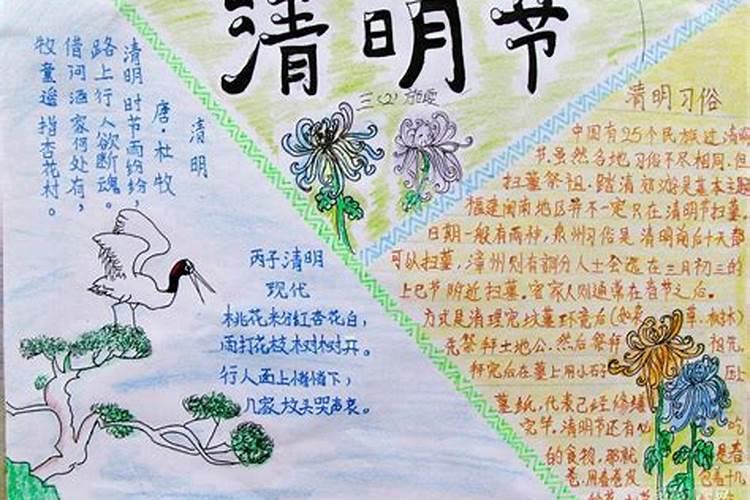 清明节
三(2) 施
清明
唐·杜牧
清明时节雨纷纷，
路上行人欲断魂。
借问酒家何处有，
牧童遥指杏花村。
丙子清明
现代
桃花粉红杏花白，
雨打花枝树树开。
行人面上
几家坟头哭声哀。
清明习俗
中国有25个民族过清明
节,虽然各地习俗不尽相同,但
扫墓祭祖、踏清郊游是基本主题
福建闽南地区并不一定只在清明节扫墓,
日期一般有两种,泉州习俗是清明前后十天都
可以扫墓,漳州则有部分人士会选在三月初三的
上巳节附近扫墓。客家人则通常在春节之后。
方式是清理完坟墓环境后(如 草、树木)
先祭拜土地公,然后祭拜 祖先,
祭完后在墓上用小石 压上
墓纸,代表已经修缮
完毕。清明节还有 的
的食物,那就 是春
卷,用春卷皮 包着